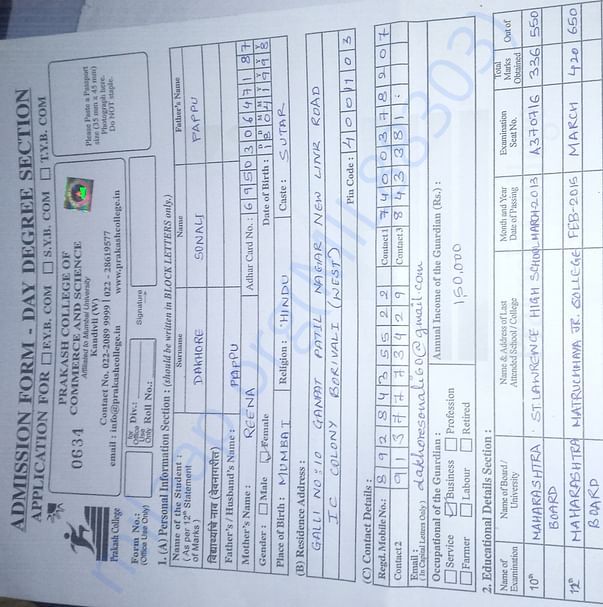 ADMISSION FORM - DAY DEGREE SECTION
APPLICATION FOR F.Y.B. COM S.Y.B. COM T.Y.B. COM
Prakash College
0634
PRAKASH COLLEGE OF
COMMERCE AND SCIENCE
Affiliated to Mumbai University
Kandivli (W)
Contact No. 022-2089 9999 | 022 - 28619577
email : info@prakashcollege.in www.prakashcollege.in
Please Paste a Passport
size (35 mm x 45 mm)
Photograph here.
Do NOT staple.
Form No.:
(Office Use Only)
for Office Use Only
Div.:
Roll No.:
Signature
1. (A) Personal Information Section : (should be written in BLOCK LETTERS only.)
Name of the Student : Surname Name Father's Name
(As per 12th Statement of Marks) DAKHORE SONALI PAPPU
Father's / Husband's Name : PAPPU
Mother's Name : REENA Adhar Card No. : 695030647187
Gender : Male Female Date of Birth : 18041998
Place of Birth : MUMBAI Religion : HINDU Caste : SUTAR
(B) Residence Address :
GALLI NO:10 GANPAT PATIL NAGAR NEW LINK ROAD
IC COLONY BORIVALI (WEST) Pin Code : 400103
(C) Contact Details :
Regd. Mobile No.: 8928435522 Contact1 7400378207
Contact2 9137773429 Contact3
Email : dakhoresonali60@gmail.com
(In Capital Letters Only)
Occupational of the Guardian : Annual Income of the Guardian (Rs.) :
Service Business Profession 150,000
Farmer Labour Retired
2. Educational Details Section :
Name of Examination Name of Board / University Name & Address of Last Attended School / College Month and Year of Passing Examination Seat No. Total Marks Obtained Out of
10th MAHARASHTRA BOARD ST LAWRENCE HIGH SCHOOL MARCH-2013 A370716 336 550
12th MAHARASHTRA BOARD MATRUCHHAYA JR. COLLEGE FEB-2015 MARCH 420 650